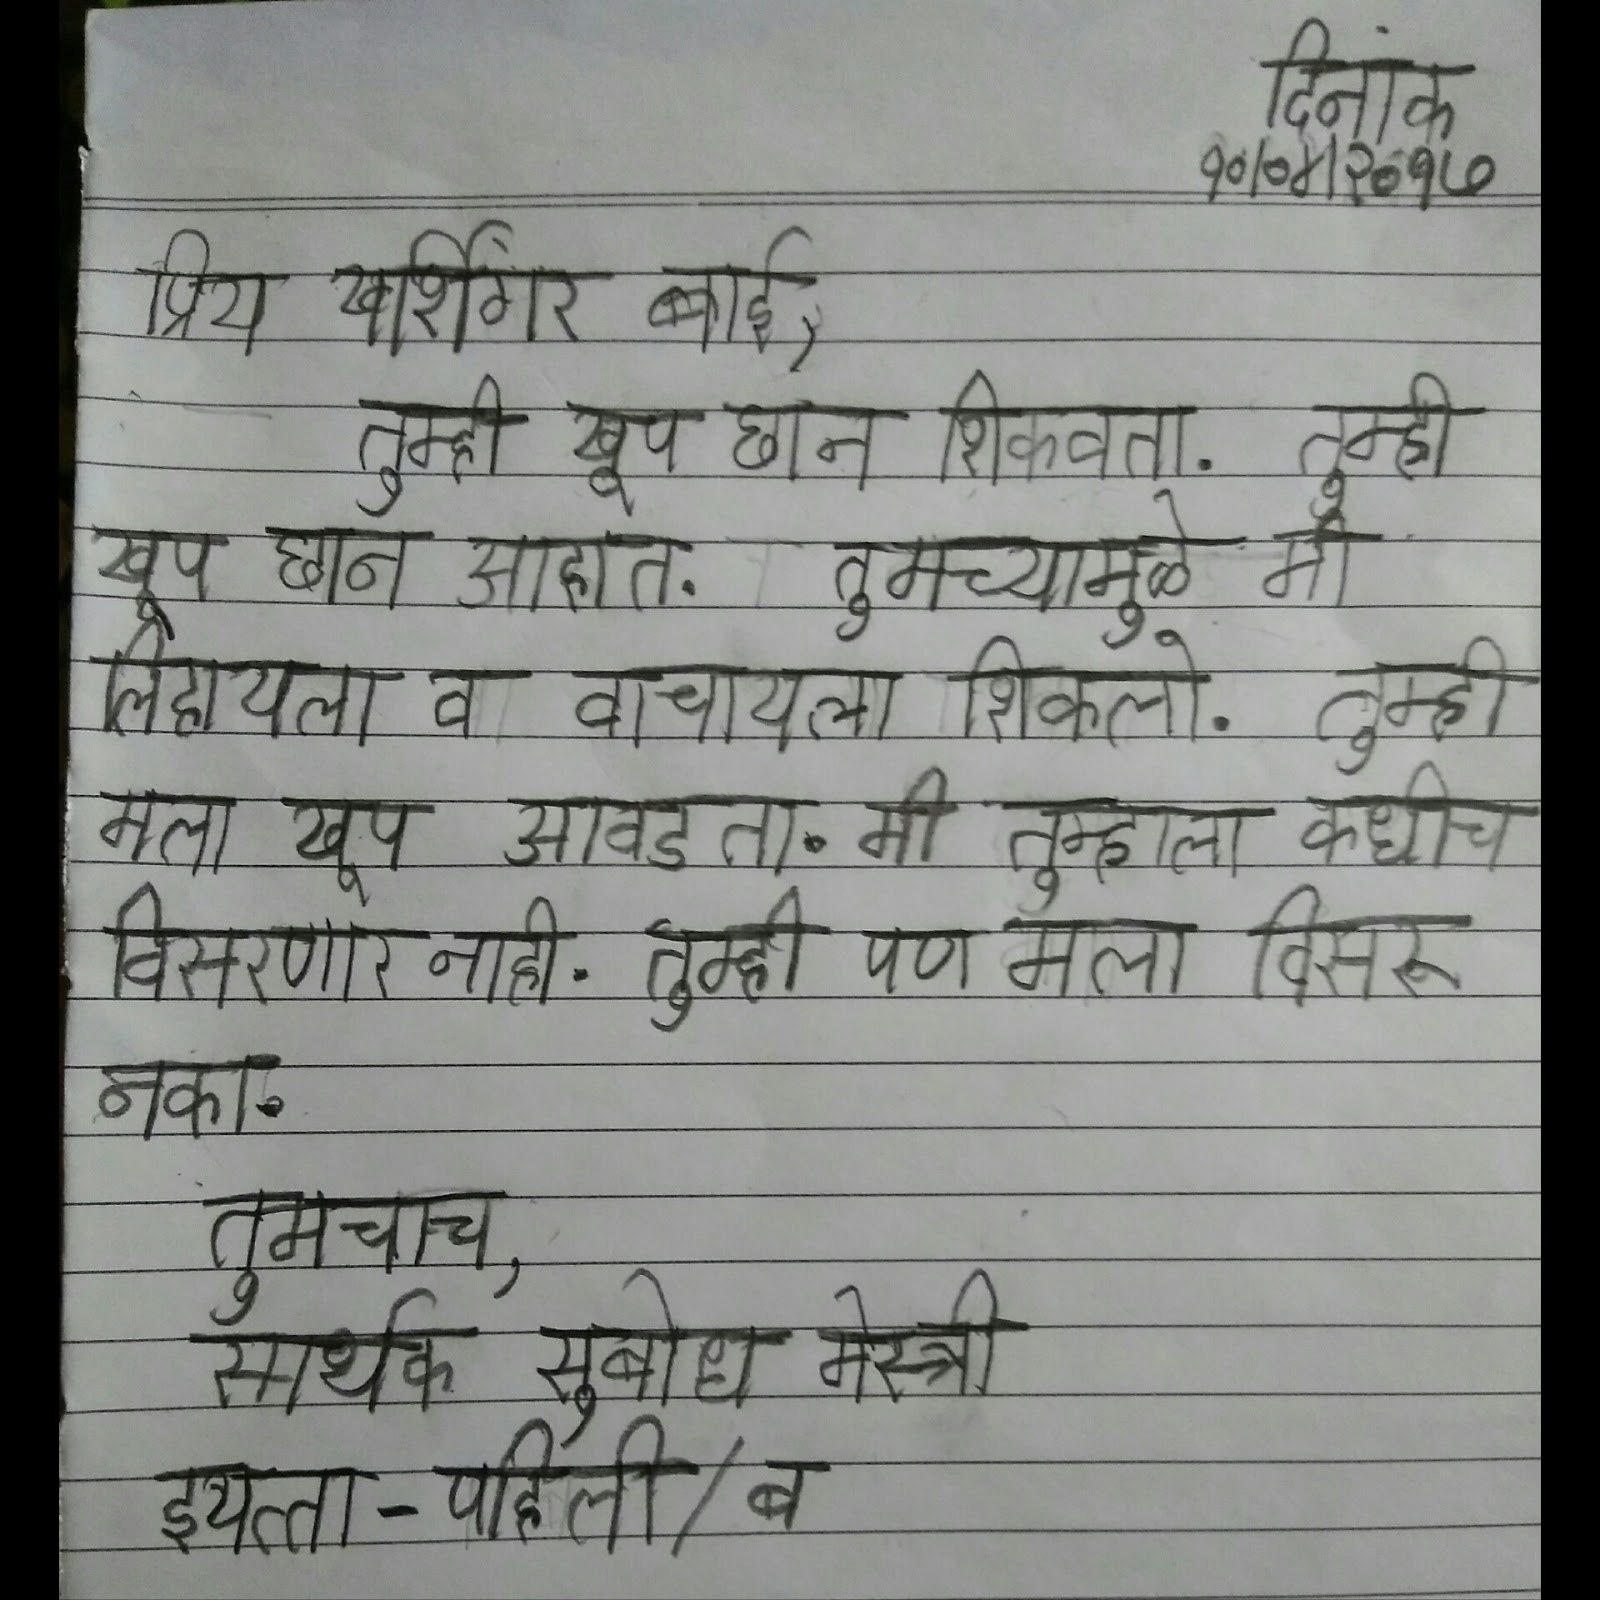 दिनांक
१०/०४/२०१७
प्रिय खर्शिंगर बाई,
तुम्ही खूप छान शिकवता. तुम्ही
खूप छान आहात. तुमच्यामुळे मी
लिहायला व वाचायला शिकलो. तुम्ही
मला खूप आवडता. मी तुम्हाला कधीच
विसरणार नाही. तुम्ही पण मला विसरू
नका.
तुमचाच,
सार्थक सुबोध मेस्त्री
इयत्ता - पहिली / ब